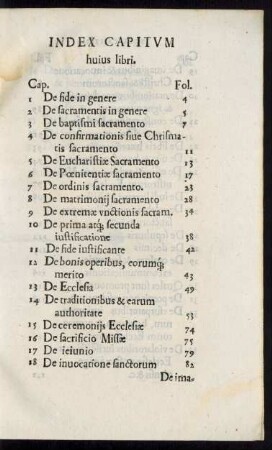 INDEX CAPITVM
huius libri.
Cap. Fol.
1 De fide in genere 4
2 De sacramentis in genere 5
3 De baptismi sacramento 7
4 De confirmationis siue Chrisma-
tis sacramento 11
5 De Eucharistiæ Sacramento 13
6 De Pœnitentiæ sacramento 17
7 De ordinis sacramento. 23
8 De matrimonij sacramento 28
9 De extremæ vnctionis sacram. 34
10 De prima atq; secunda
iustificatione 38
11 De fide iustificante 42
12 De bonis operibus, eorumq;
merito 43
13 De Ecclesia 49
14 De traditionibus & earum
authoritate 53
15 De ceremonijs Ecclesiæ 74
16 De sacrificio Missæ 75
17 De ieiunio 79
18 De inuocatione sanctorum 82
De ima-